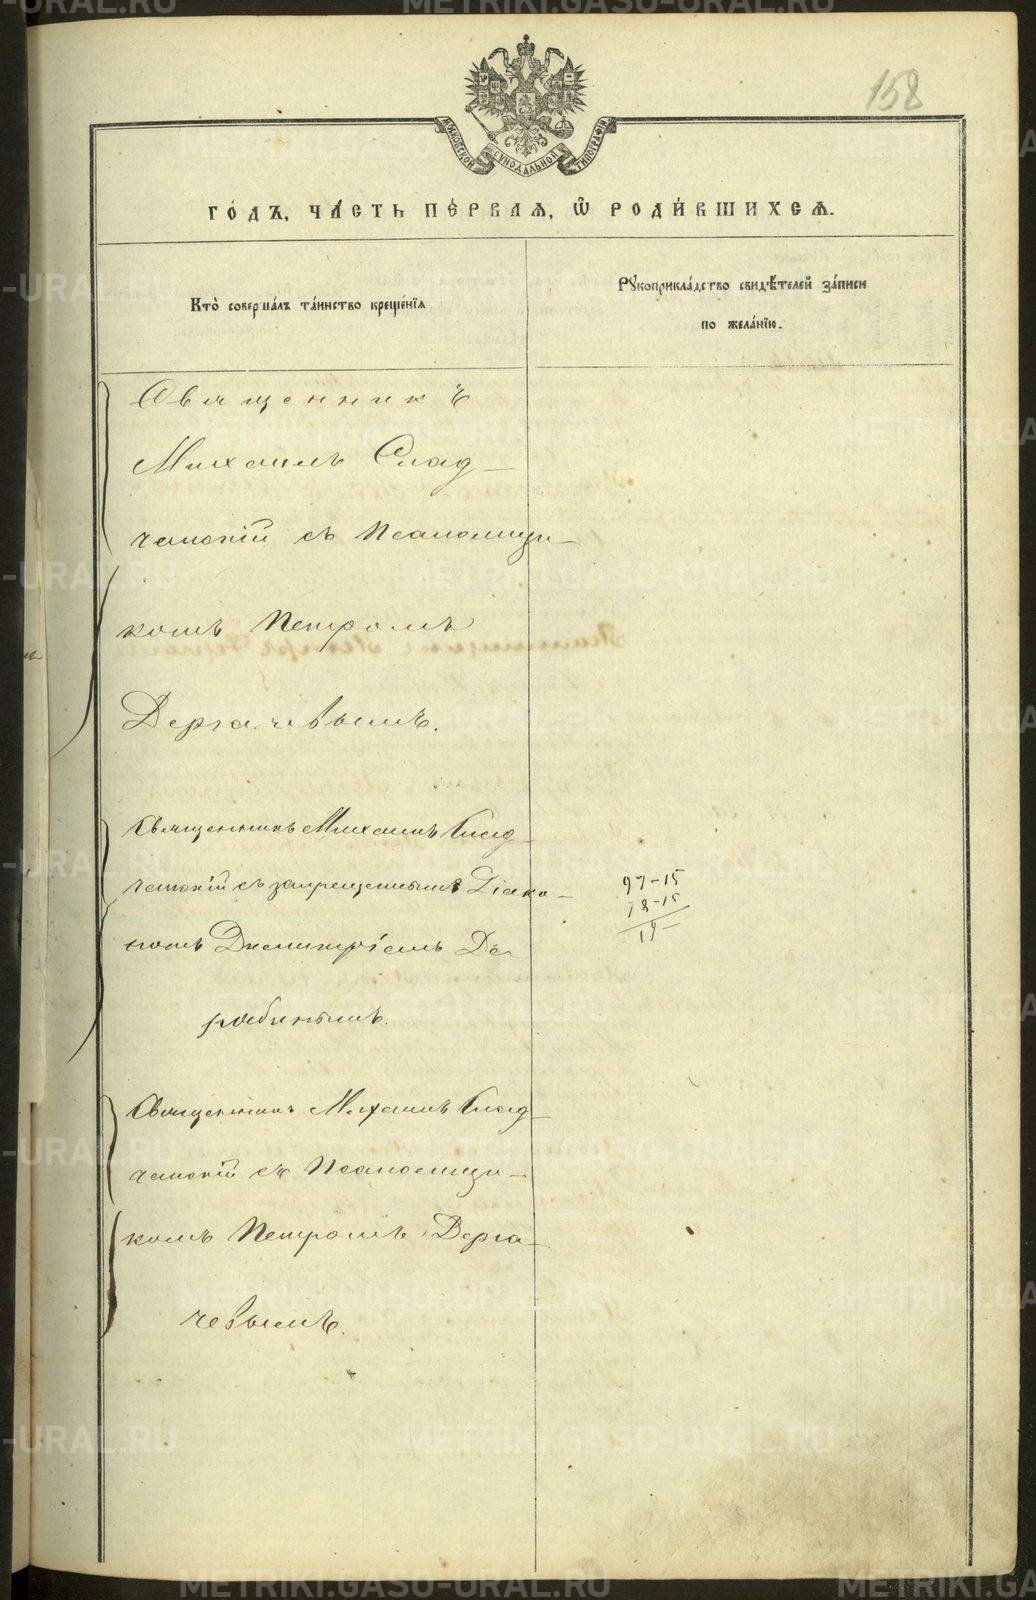 METRIKI.GASO-URAL.RU
158
МОСКОВСКОЙ СѴНОДАЛЬНОЙ ТИПОГРАФІИ
ГО́ДЪ, ЧА́СТЬ ПЕ́РВАѦ, Ѽ РОДИ́ВШИХСѦ.
Кто̀ соверша́лъ та́инство креще́нїѧ
Рꙋкоприкла́дство свидѣ́телей за́писи
по жела́нїю.
Священникъ
Михаилъ Слад-
чанскій съ Псаломщи-
комъ Петромъ
Дергачевымъ.
Священникъ Михаилъ Слад-
чанскій съ запрещеннымъ Діако-
номъ Димитріемъ
97-15
78-15
19-
Священникъ Михаилъ Слад-
чанскій съ Псаломщи-
комъ Петромъ Дерга-
чевымъ.